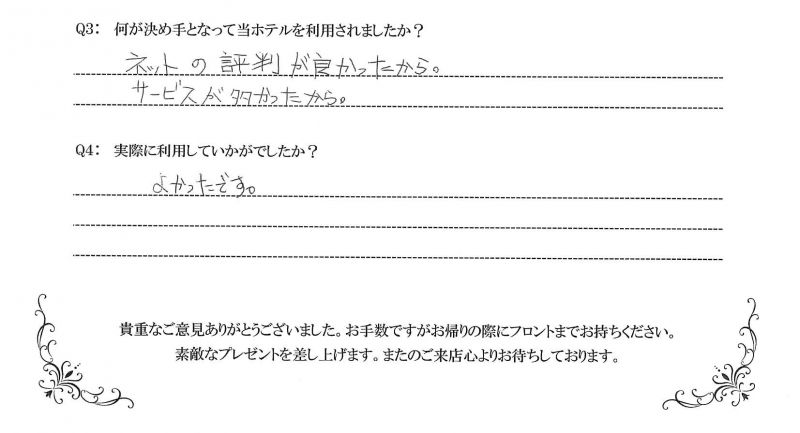 Q3： 何が決め手となって当ホテルを利用されましたか？
ネットの評判が良かったから。
サービスが多かったから。
Q4： 実際に利用していかがでしたか？
よかったです。
貴重なご意見ありがとうございました。お手数ですがお帰りの際にフロントまでお持ちください。
素敵なプレゼントを差し上げます。またのご来店心よりお待ちしております。